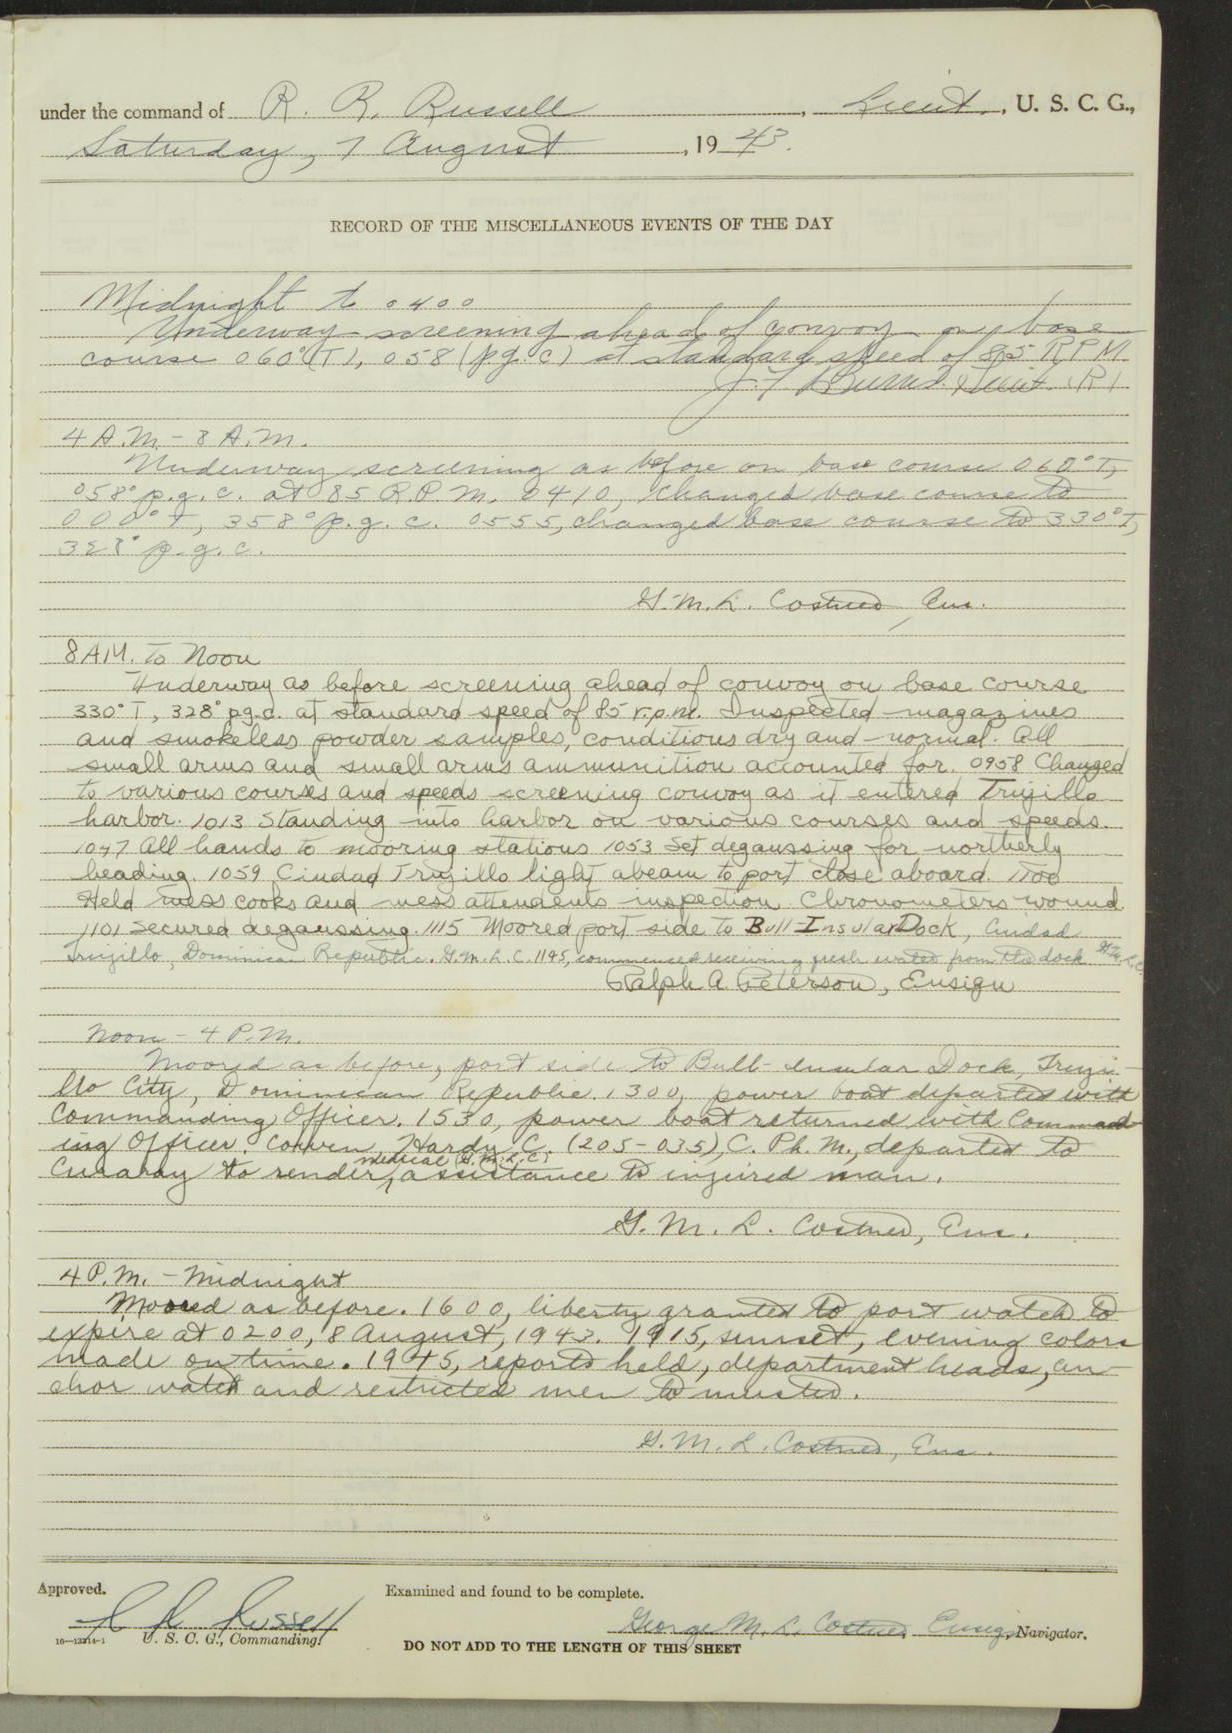 under the command of R. R. Russell, Lieut., U. S. C. G.,
Saturday, 7 August, 1943.
RECORD OF THE MISCELLANEOUS EVENTS OF THE DAY
Midnight to 0400
Underway screening ahead of convoy on base
course 060°(T), 058 (p.g.c) at standard speed of 85 RPM
J. F. Burns. Lieut (R)
4 A.M. - 8 A.M.
Underway screening as before on base course 060° T,
058° p.g.c. at 85 R.P.M. 0410, changed base course to
000° T, 358° p.g.c. 0555, changed base course to 330° T,
328° p.g.c.
G.M.L. Costner, Ens.
8 AM. to Noon
Underway as before screening ahead of convoy on base course
330° T, 328° p.g.c. at standard speed of 85 r.p.m. Inspected magazines
and smokeless powder samples, conditions dry and normal. All
small arms and small arms ammunition accounted for. 0958 Changed
to various courses and speeds screening convoy as it entered Trujillo
harbor. 1013 Standing into harbor on various courses and speeds.
1047 All hands to mooring stations 1053 Set degaussing for northerly
heading. 1059 Ciudad Trujillo light abeam to port close aboard. 1100
Held mess cooks and mess attendents inspection. Chronometers wound
1101 Secured degaussing. 1115 Moored port side to Bull Insular Dock, Ciudad
Trujillo, Dominican Republic. G.M.L.C. 1145, commenced receiving fresh water from the dock G.M.L.C.
Ralph A. Peterson, Ensign
Noon - 4 P.M.
Moored as before, port side to Bull-Insular Dock, Truji-
llo City, Dominican Republic. 1300, power boat departed with
Commanding Officer. 1530, power boat returned with Command-
ing Officer. Hardy, C. (205-035), C. Ph. M., departed to
medical G.M.L.C.
Curaray to render assistance to injured man.
G. M. L. Costner, Ens.
4 P.M. - Midnight
Moored as before. 1600, liberty granted to port watch to
expire at 0200, 8 August, 1943. 1915, sunset, evening colors
made on time. 1945, reports held, department heads, an-
chor watch and restricted men to muster.
G. M. L. Costner, Ens.
Approved.
Examined and found to be complete.
R R Russell
George M. L. Costner, Ensign, Navigator.
16—13214-1 U. S. C. G., Commanding.
DO NOT ADD TO THE LENGTH OF THIS SHEET